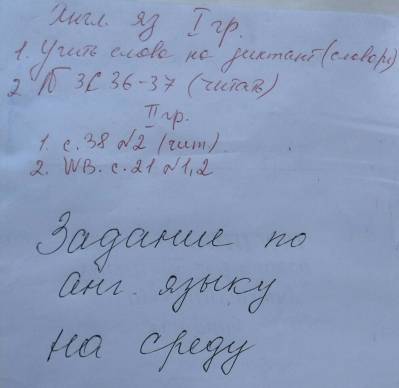 Англ яз I гр.
1. Учить слова на диктант (словарь)
2. № 3 С 36-37 (читать)
II гр.
1. с. 38 №2 (чит)
2. WB. с. 21 №1,2
Задание по
анг. языку
на среду